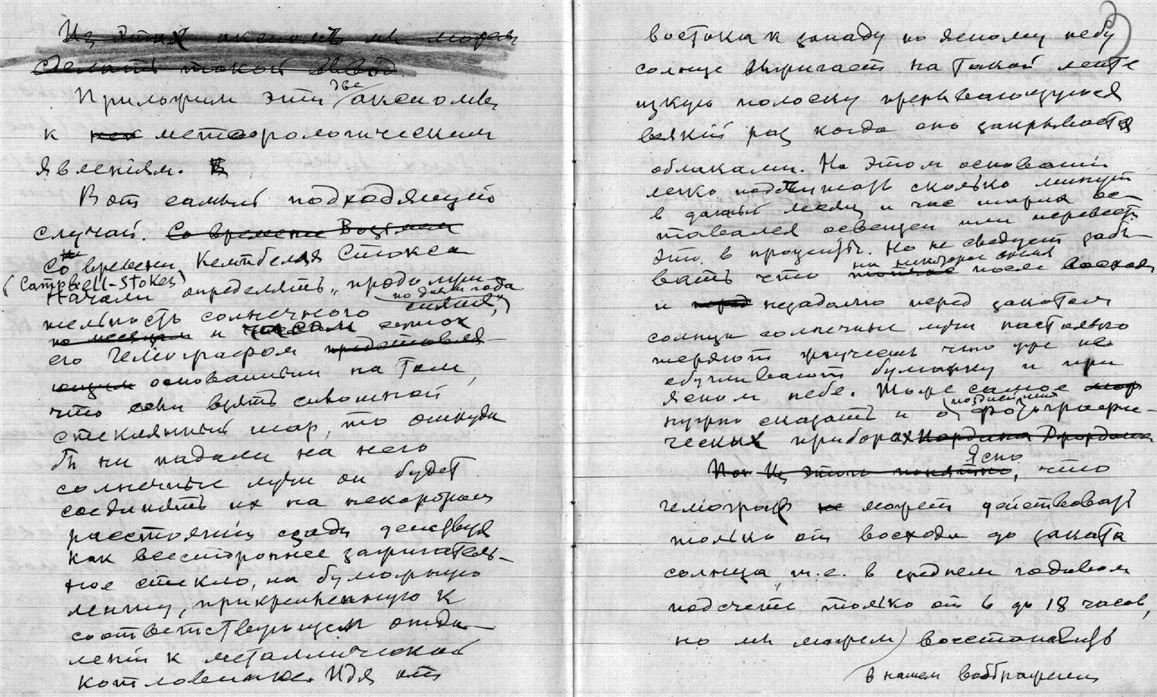 Из этих аксиомъ мы можем
сделать такой вывод
Приложим эти две аксиомы
к метеорологическим
явленіям.
Вот самый подходящій
случай. Со времени Возьмем
Со времени Кемпбелля Стокса
(Campbell-Stokes)
начали определять „продолжи-
тельность солнечного сияния", по дням года
по месяцам и часам суток
его Гелиографом представля-
ющим основанным на том,
что если взять сплошной
стеклянный шар, то откуда
бы ни падали на него
солнечные лучи он будет
соединять их на некотором
расстоянии сзади действуя
как всестороннее зажигатель-
ное стекло, на бумажную
ленту, прикрепленную к
соответствующем отда-
леніи к металлической
котловинке. Идя от
востока к западу по ясному небу
солнце выжигает на такой ленте
узкую полоску прерывающуюся
всякий раз когда оно закрывается
облаками. На этом основании
легко подсчитать сколько минут
в данный месяц и час шарик ос-
тавался освещен или перевести
это в проценты. Но не следует забы-
вать что на некоторое время после восхода
и перед незадолго перед закатом
солнца солнечные лучи настолько
теряют жгучесть что уже не
обугливают бумажку и при
ясном небе. Тоже самое
нужно сказать и о позднейших фотографи-
ческих приборах Иордана Джордана
Ясно
Из этого понятно, что
гелиограф не может действовать
только от восхода до заката
солнца, т.е. в среднем годовом
подсчете только от 6 до 18 часов,
но мы можем восстановить
в нашем воображении